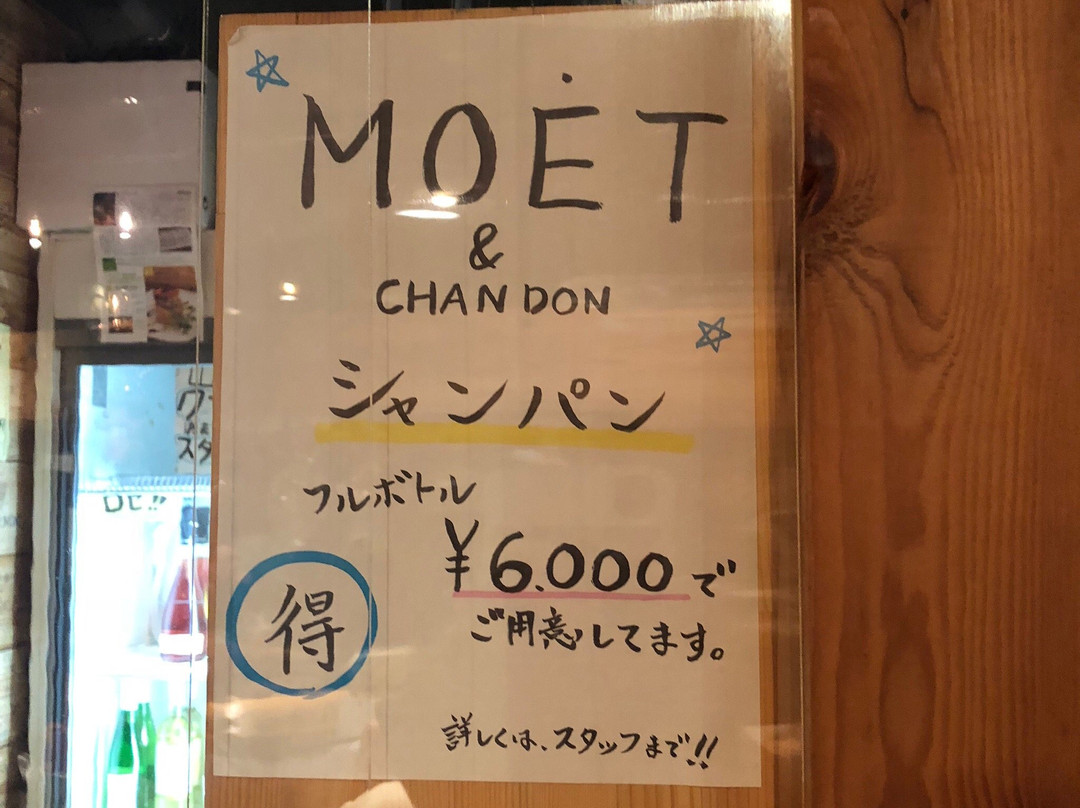 MOĖT
&
CHANDON
シャンパン
フルボトル
¥6.000で
ご用意してます。
得
詳しくは、スタッフまで!!